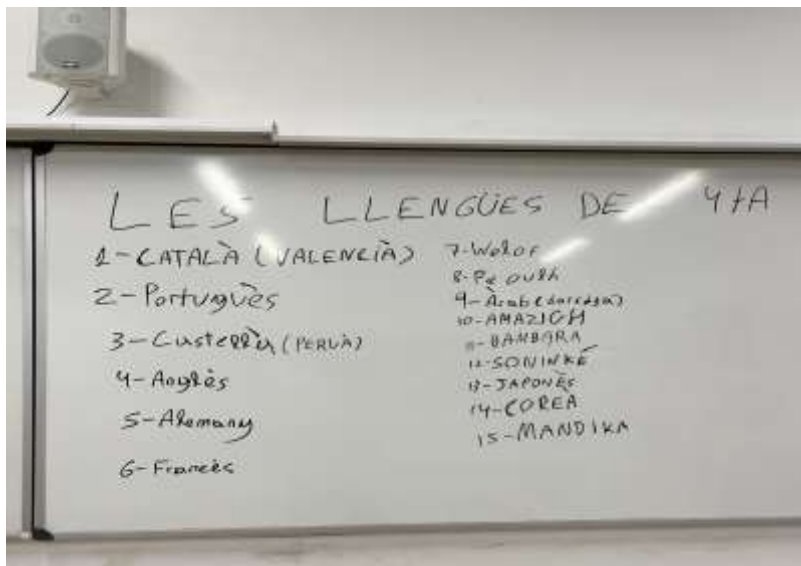 LES LLENGÜES DE 4tA
1-CATALÀ (VALENCIÀ)
2-Portuguès
3-Castellà (PERUÀ)
4-Anglès
5-Alemany
6-Francès
7-Wolof
8-Pe oulh
9-Àrab (darisja)
10-AMAZIGH
11-BAMBARA
12-SONINKÉ
13-JAPONÈS
14-COREÀ
15-MANDIKA